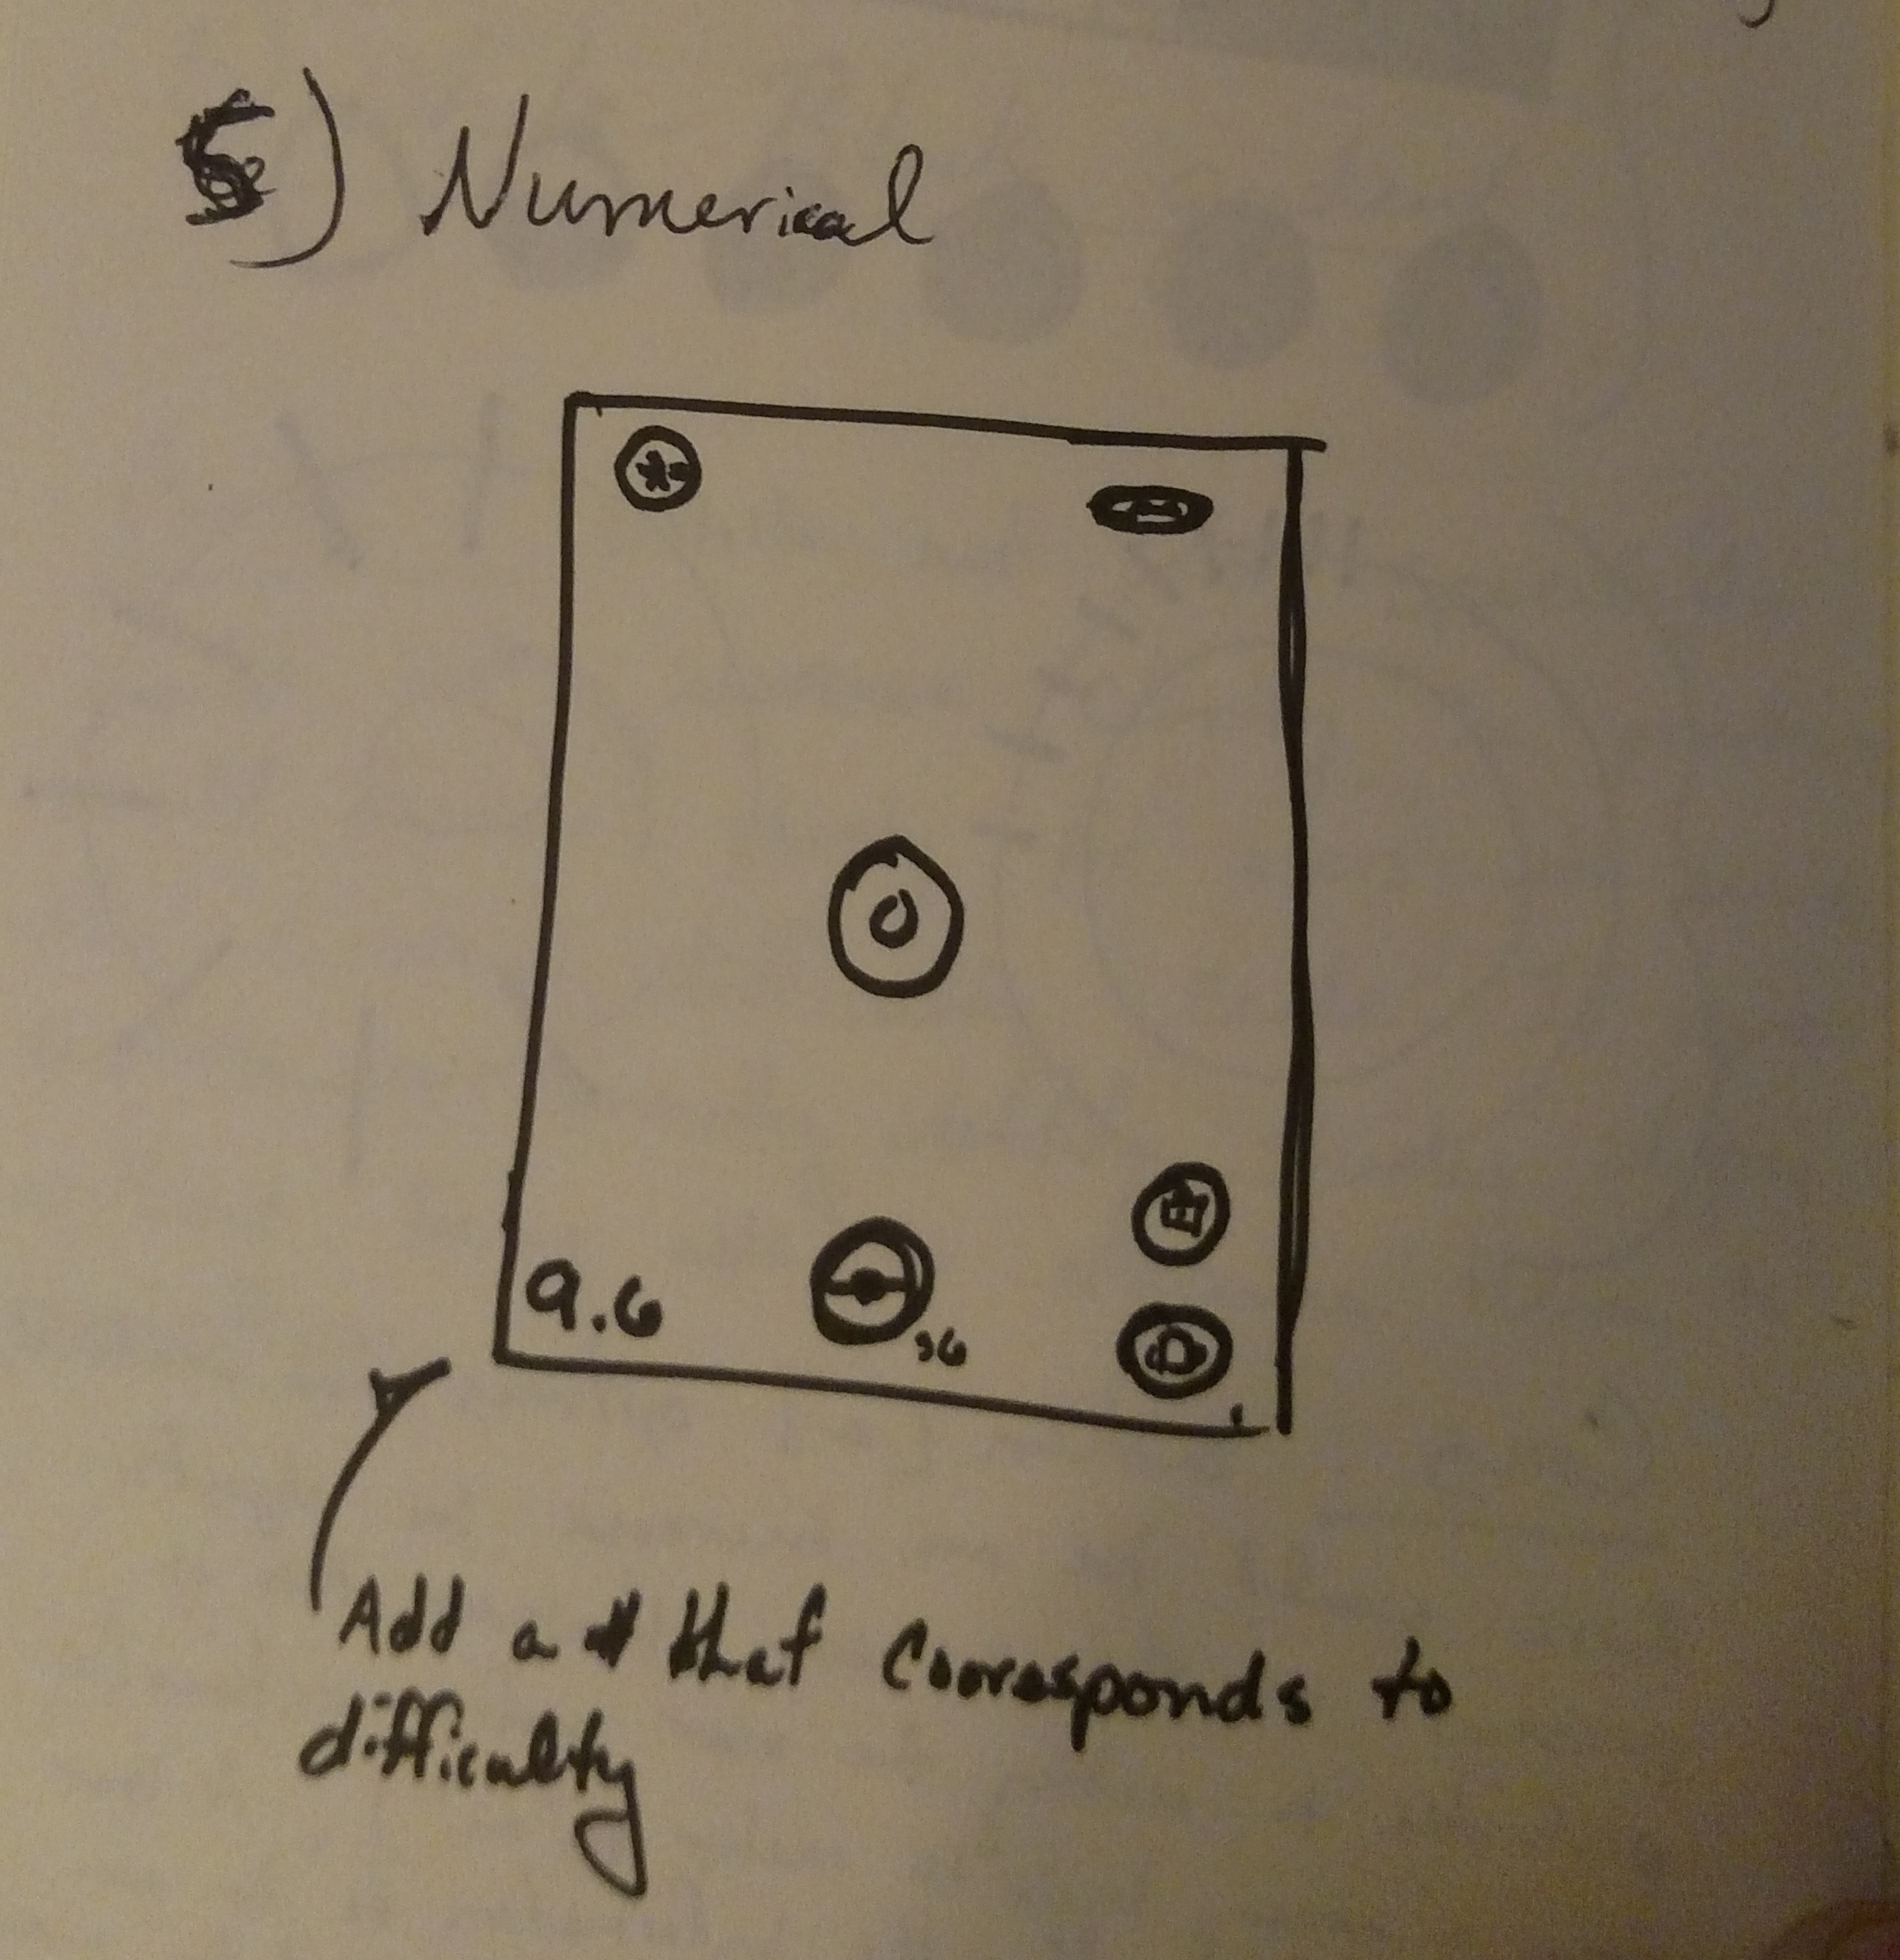 5) Numerical
9.6
36
Add a # that corresponds to
difficulty